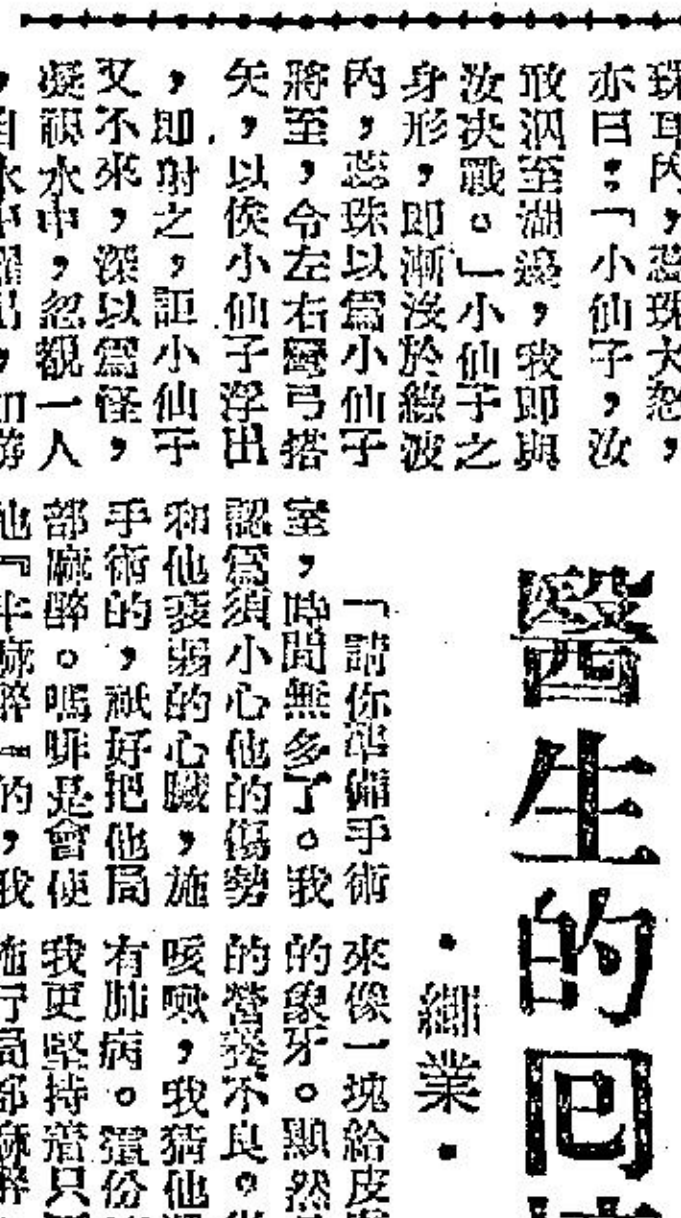 珠耳內，蕊珠大怒，
亦曰：「小仙子，汝
敢泅至湖邊，我即與
汝決戰。」小仙子之
身形，即漸沒於綠波
內，蕊珠以爲小仙子
將至，令左右彎弓搭
矢，以俟小仙子浮出
，即射之，詎小仙子
又不來，深以爲怪，
凝視水中，忽覩一人
醫生的回
・繝業・
「請你準備手術
室，時間無多了。我
認爲須小心他的傷勢
和他衰弱的心臟，施
手術的，祇好把他局
部麻醉。嗎啡是會使
他『半麻醉』的，我
來像一塊給皮
的象牙。顯然
的營養不良。
咳嗽，我猜他
有肺病。這份
我更堅持着只
施行局部麻醉